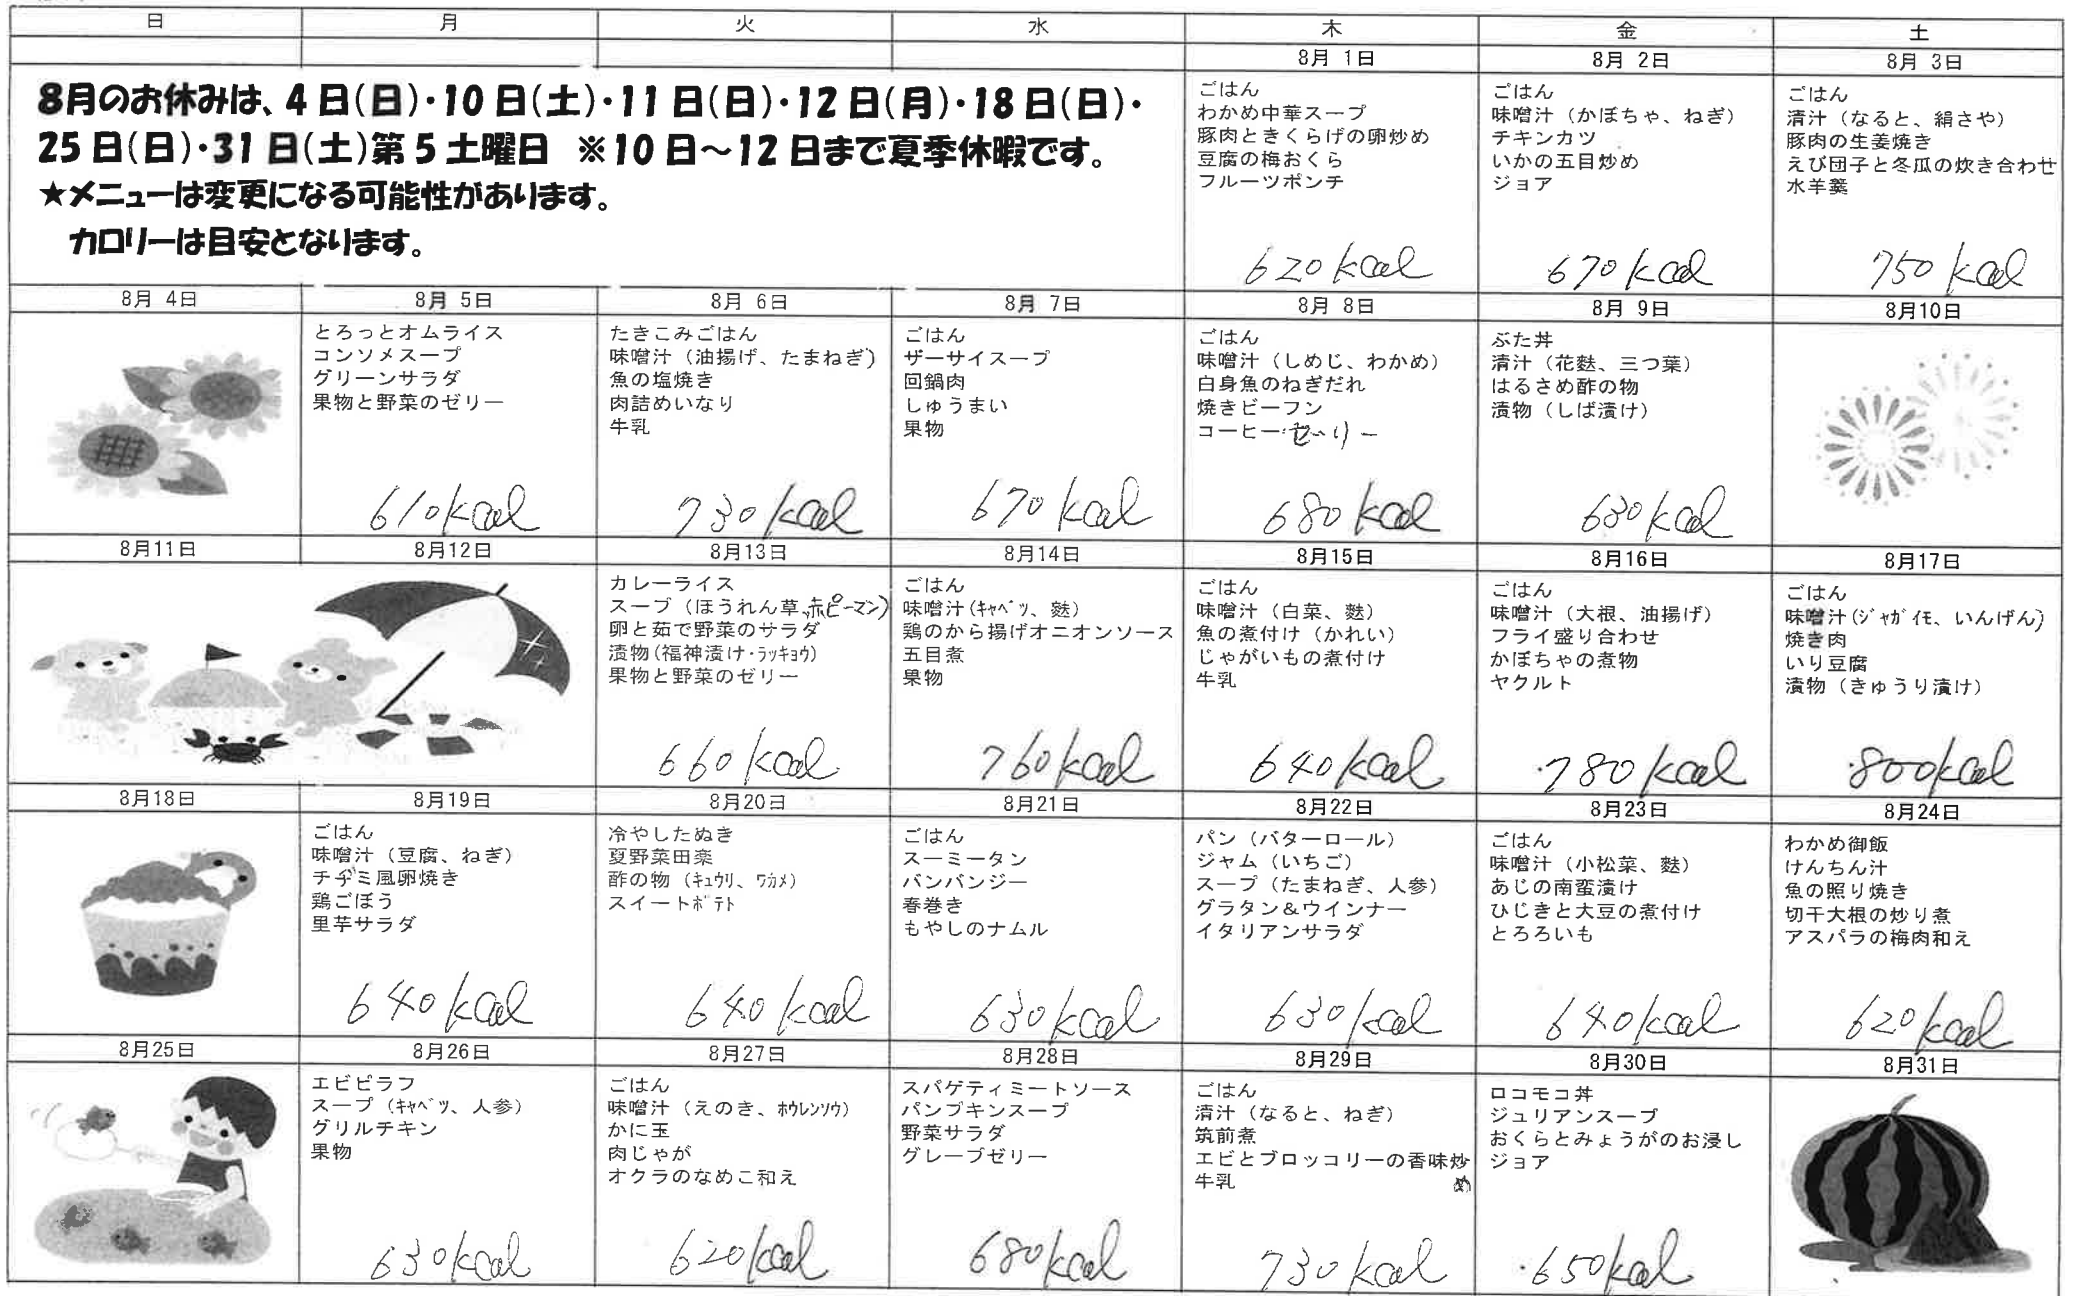 日 月 火 水 木 金 土
8月のお休みは、4日(日)・10日(土)・11日(日)・12日(月)・18日(日)・
25日(日)・31日(土)第5土曜日 ※10日～12日まで夏季休暇です。
★メニューは変更になる可能性があります。
カロリーは目安となります。
8月 1日
ごはん
わかめ中華スープ
豚肉ときくらげの卵炒め
豆腐の梅おくら
フルーツポンチ
620kcal
8月 2日
ごはん
味噌汁（かぼちゃ、ねぎ）
チキンカツ
いかの五目炒め
ジョア
670kcal
8月 3日
ごはん
清汁（なると、絹さや）
豚肉の生姜焼き
えび団子と冬瓜の炊き合わせ
水羊羹
750kcal
8月 4日
8月 5日
とろっとオムライス
コンソメスープ
グリーンサラダ
果物と野菜のゼリー
610kcal
8月 6日
たきこみごはん
味噌汁（油揚げ、たまねぎ）
魚の塩焼き
肉詰めいなり
牛乳
730kcal
8月 7日
ごはん
ザーサイスープ
回鍋肉
しゅうまい
果物
670kcal
8月 8日
ごはん
味噌汁（しめじ、わかめ）
白身魚のねぎだれ
焼きビーフン
コーヒーゼリー
680kcal
8月 9日
ぶた丼
清汁（花麩、三つ葉）
はるさめ酢の物
漬物（しば漬け）
630kcal
8月10日
8月11日
8月12日
8月13日
カレーライス
スープ（ほうれん草、赤ピーマン）
卵と茹で野菜のサラダ
漬物(福神漬け・ﾗｯｷｮｳ)
果物と野菜のゼリー
660kcal
8月14日
ごはん
味噌汁(ｷｬﾍﾞﾂ、麩)
鶏のから揚げオニオンソース
五目煮
果物
760kcal
8月15日
ごはん
味噌汁（白菜、麩）
魚の煮付け（かれい）
じゃがいもの煮付け
牛乳
640kcal
8月16日
ごはん
味噌汁（大根、油揚げ）
フライ盛り合わせ
かぼちゃの煮物
ヤクルト
780kcal
8月17日
ごはん
味噌汁(ｼﾞｬｶﾞｲﾓ、いんげん)
焼き肉
いり豆腐
漬物（きゅうり漬け）
800kcal
8月18日
8月19日
ごはん
味噌汁（豆腐、ねぎ）
チヂミ風卵焼き
鶏ごぼう
里芋サラダ
640kcal
8月20日
冷やしたぬき
夏野菜田楽
酢の物（ｷｭｳﾘ、ﾜｶﾒ）
スイートﾎﾟﾃﾄ
640kcal
8月21日
ごはん
スーミータン
バンバンジー
春巻き
もやしのナムル
630kcal
8月22日
パン（バターロール）
ジャム（いちご）
スープ（たまねぎ、人参）
グラタン＆ウインナー
イタリアンサラダ
630kcal
8月23日
ごはん
味噌汁（小松菜、麩）
あじの南蛮漬け
ひじきと大豆の煮付け
とろろいも
640kcal
8月24日
わかめ御飯
けんちん汁
魚の照り焼き
切干大根の炒り煮
アスパラの梅肉和え
620kcal
8月25日
8月26日
エビピラフ
スープ（ｷｬﾍﾞﾂ、人参）
グリルチキン
果物
630kcal
8月27日
ごはん
味噌汁（えのき、ﾎｳﾚﾝｿｳ）
かに玉
肉じゃが
オクラのなめこ和え
620kcal
8月28日
スパゲティミートソース
パンプキンスープ
野菜サラダ
グレープゼリー
680kcal
8月29日
ごはん
清汁（なると、ねぎ）
筑前煮
エビとブロッコリーの香味炒
め
牛乳
730kcal
8月30日
ロコモコ丼
ジュリアンスープ
おくらとみょうがのお浸し
ジョア
650kcal
8月31日